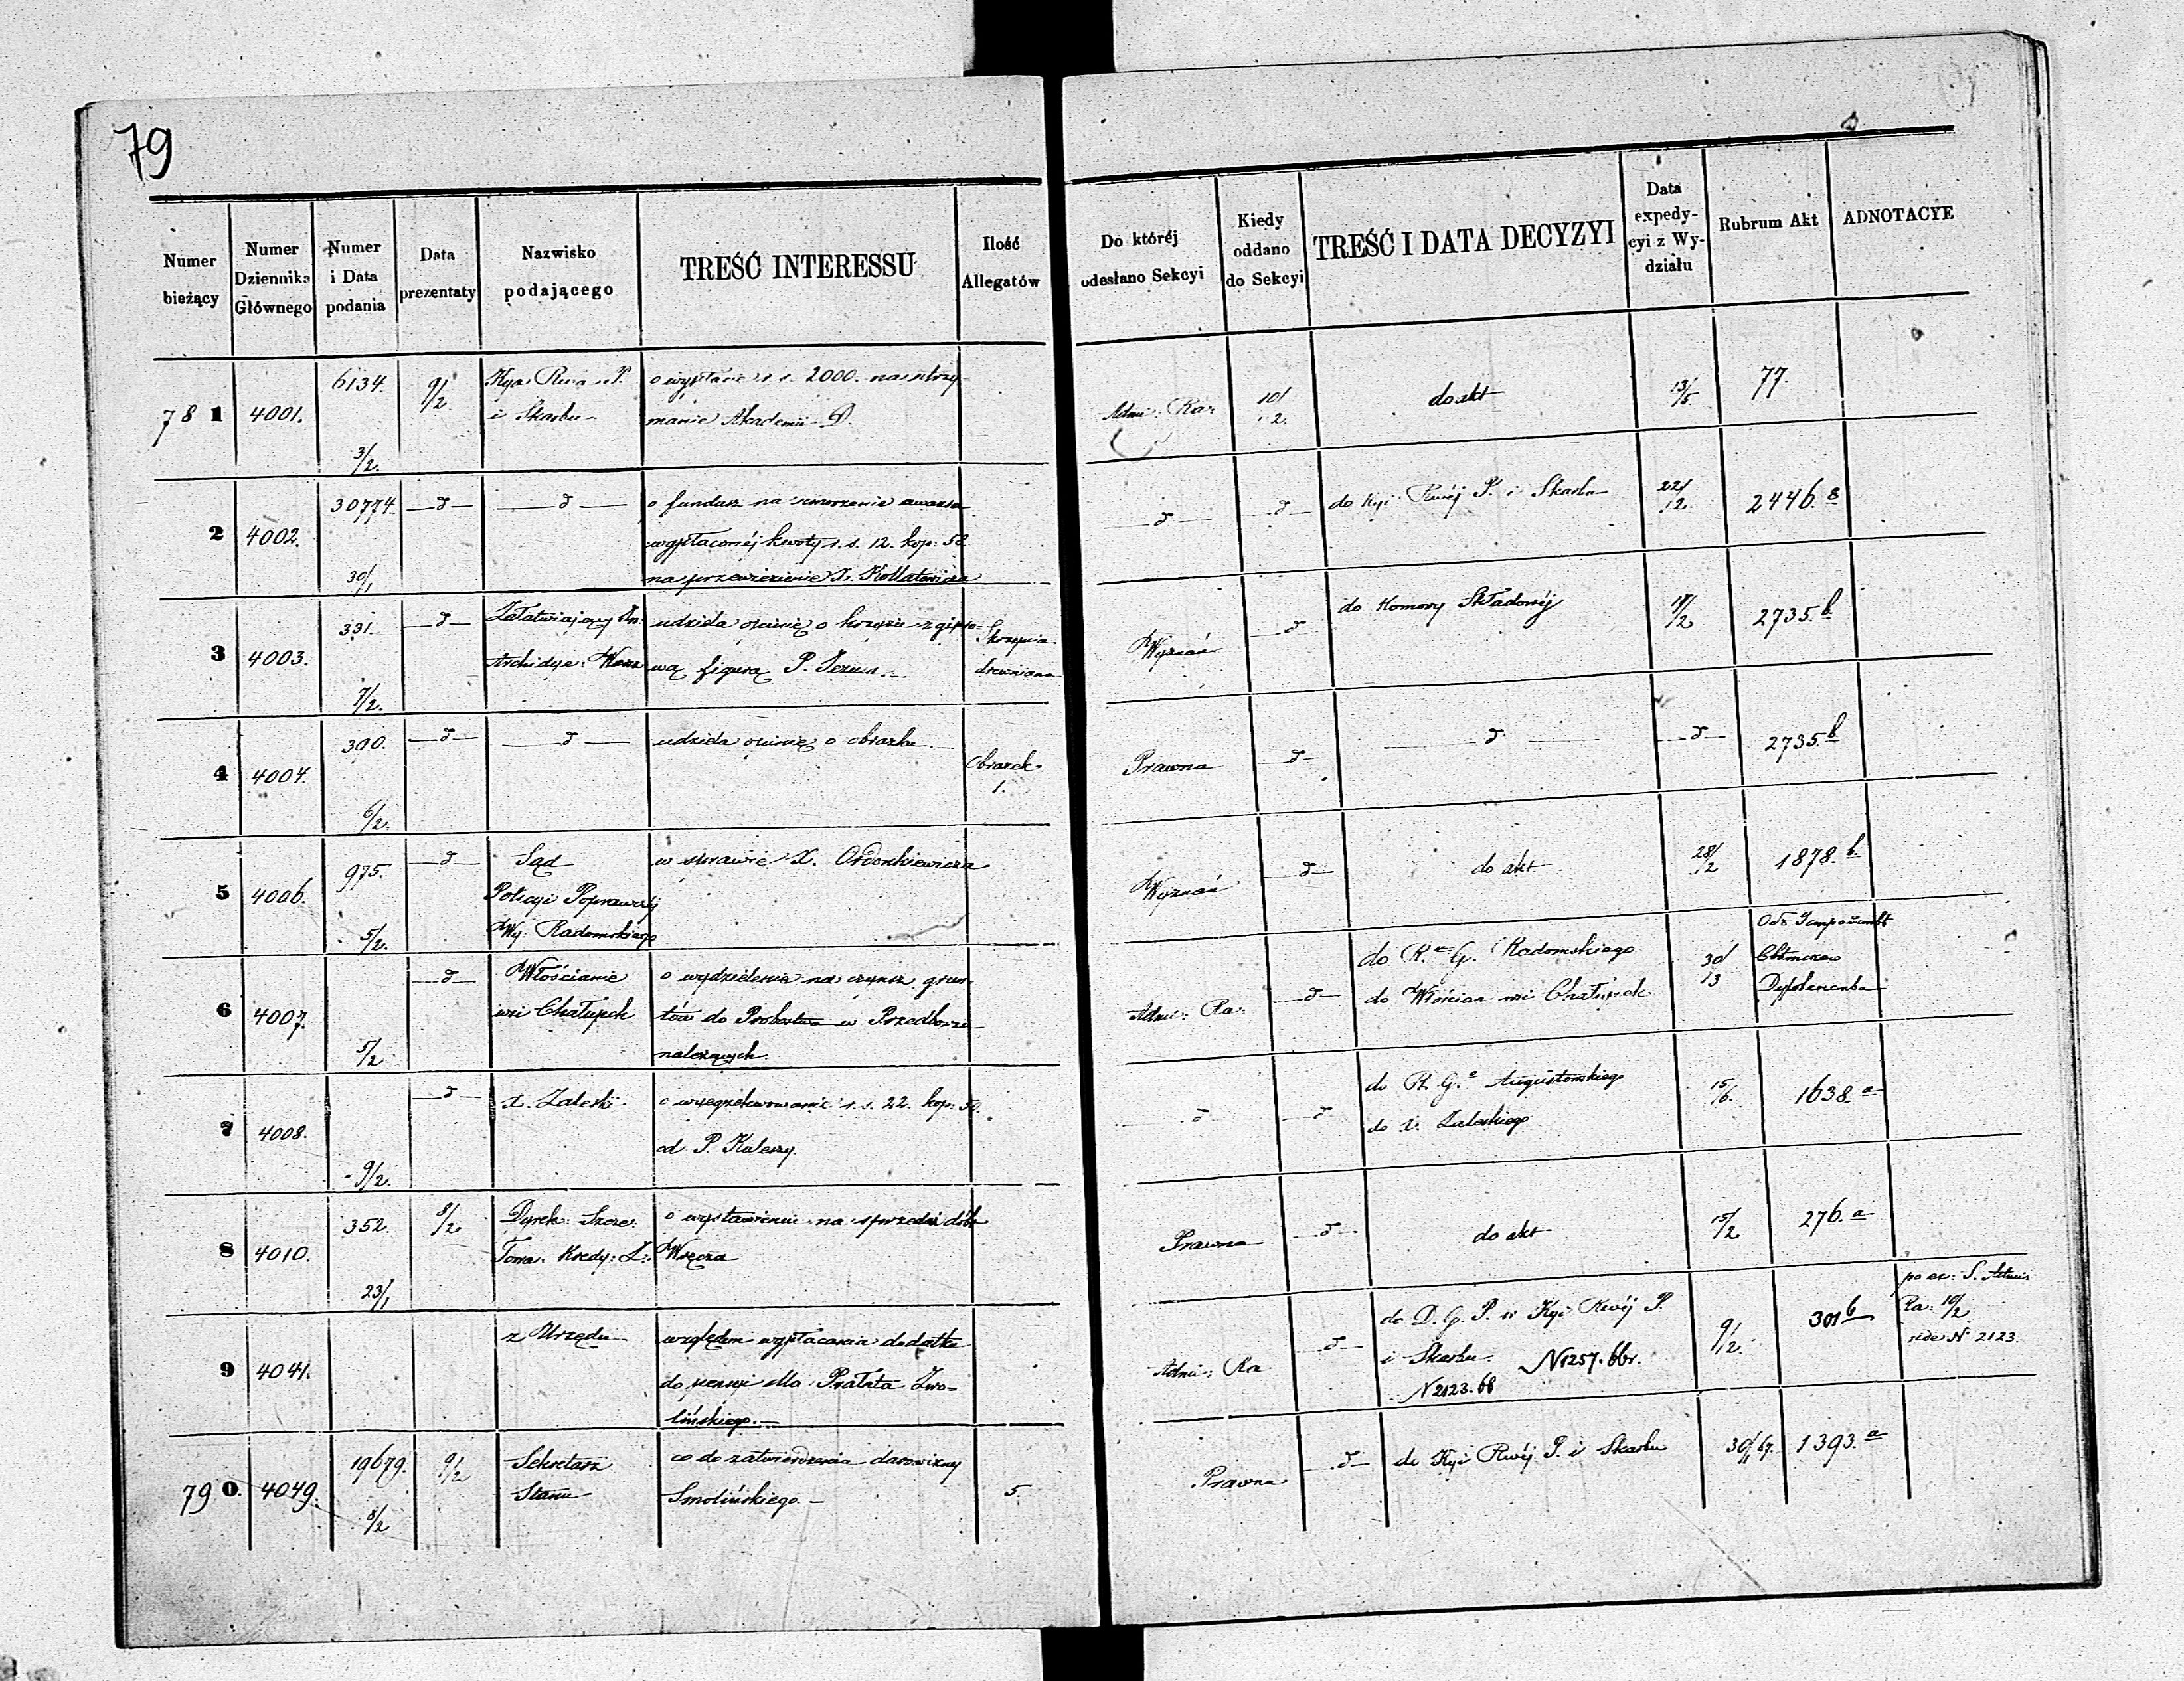 79
Numer bieżący
Numer Dziennika Głównego
Numer i Data podania
Data prezentaty
Nazwisko podającego
TREŚĆ INTERESSU
Ilość Allegatów
Do któréj odesłano Sekcyi
Kiedy oddano do Sekcyi
TREŚĆ I DATA DECYZYI
Data expedycyi z Wydziału
Rubrum Akt
ADNOTACYE
78 1
4001.
6134.
3/2.
9/2
i Skarbu
o wypłacie r. s. 2000. na utrzy-
manie Akademii D.
Admi: Ra:
10/2.
do akt
13/5.
77.
2
4002.
30774
30/1
—d—
—d—
o fundusz na umorzenie awansu
wypłaconéj kwoty r. s. 12. kop: 50
na przewiezienie X.
—d—
—d—
do Kyi Rwéj P. i Skarbu
22/12
2446. a
3
4003.
331.
7/2.
—d—
Załatwiający In:
Archidye: Warsz
udziela opinię o krzyżu z gipso=
wą figurą P. Jezusa.
Skrzynia
drewniana
Wyznań
—d—
do Komory Składowéj
18/2
2735. b
4
4004.
390.
6/2.
—d—
—d—
udziela opinię o obrazku.
Obrazek
1.
Prawna
—d—
—d—
—d—
2735. b
5
4006.
975.
5/2.
—d—
Sąd
Policyi Poprawczéj
Wy: Radomskiego
w sprawie X. Ordonkiewicza
Wyznań
—d—
do akt
28/2
1878. b.
6
4007.
5/2
—d—
Włościanie
wsi Chałupek
o wydzielenie na czynsz grun-
tów do Probostwa w Przedborzu
należących.
Admi: Ra:
—d—
do R. G. Radomskiego
do Włościan wsi Chałupek
30/3
7
4008.
9/2.
—d—
X. Zaleski
o wyegzekwowanie r. s. 22. kop: 50.
od P. Kuleszy.
d
—d
do R. G. Augustowskiego
do X. Zaleskiego
15/6.
1638. a
8
4010.
352.
23/1
8/2
Dyrek: Szcze:
Towa: Kredy: Z:
o wystawieniu na sprzedaż dóbr
Wręcza
Prawna
—d—
do akt
15/2
276. a
9
4041.
z Urzędu
względem wypłacania dodatku
do pensyi dla Prałata Zwo-
lińskiego.
Admi: Ra
—d—
do D. G. P. w Kyi Rwéj P.
i Skarbu. N 1257. 66r.
N 2123. 68
9/2.
301 b
po ex: S. Admi:
Ra: 10/2
vide N° 2123.
79 0.
4049.
19679.
8/2
9/2
Sekretarz
Stanu
co do zatwierdzenia darowizny
Smolińskiego.
5.
Prawna
—d—
do Kyi Rwéj P. i Skarbu
67.
1393. a